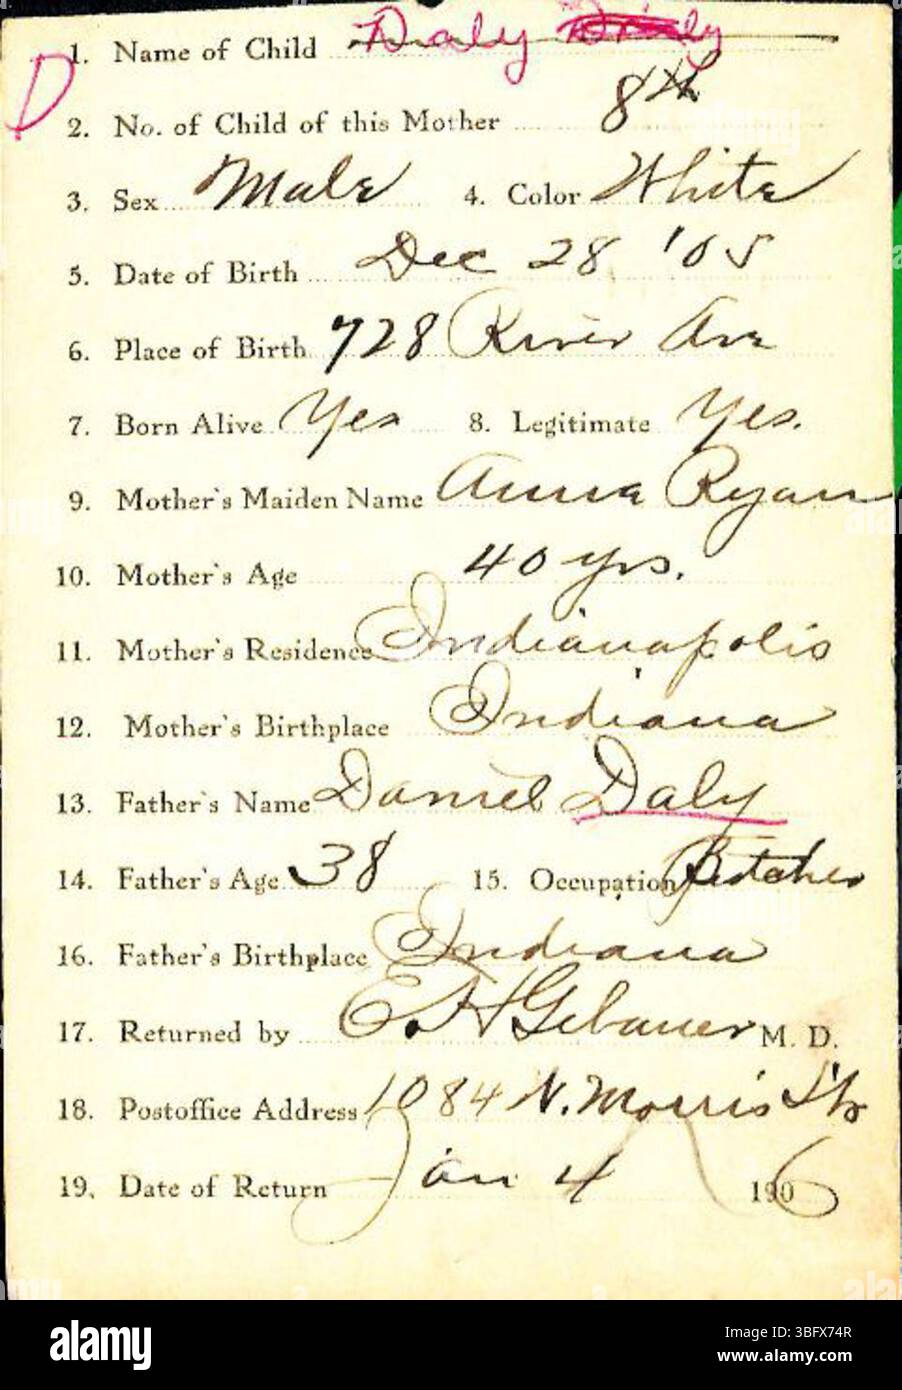 D
1. Name of Child Daly
2. No. of Child of this Mother 8th
3. Sex Male 4. Color White
5. Date of Birth Dec 28 '05
6. Place of Birth 728 River Ave
7. Born Alive Yes 8. Legitimate Yes.
9. Mother's Maiden Name Anna Ryan
10. Mother's Age 40 yrs.
11. Mother's Residence Indianapolis
12. Mother's Birthplace Indiana
13. Father's Name Daniel Daly
14. Father's Age 38 15. Occupation Butcher
16. Father's Birthplace Indiana
17. Returned by E. H Gebauer M. D.
18. Postoffice Address 1084 N. Morris St
19. Date of Return Jan 4 1906
alamy
Image ID: 3BFX74R
www.alamy.com